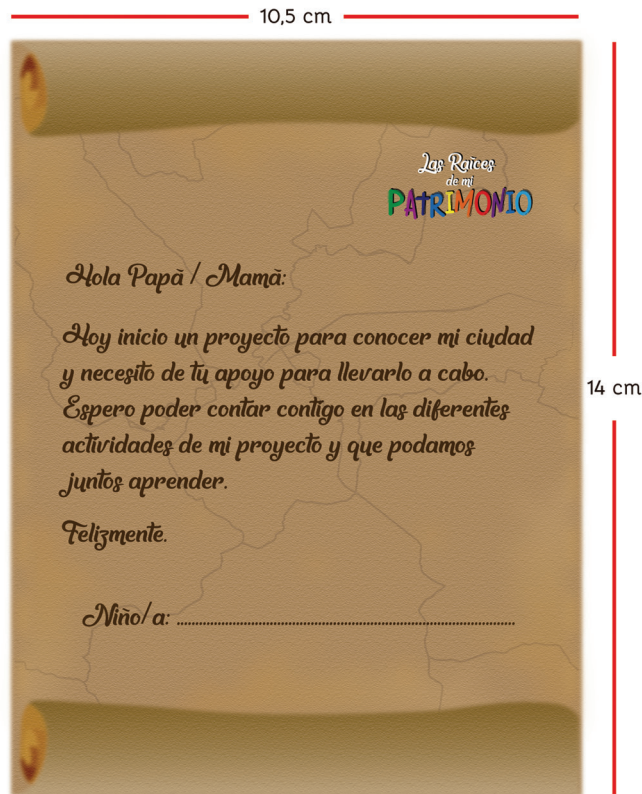 10,5 cm
Las Raíces
de mi
PATRIMONIO
Hola Papá / Mamá:
Hoy inicio un proyecto para conocer mi ciudad
y necesito de tu apoyo para llevarlo a cabo.
Espero poder contar contigo en las diferentes
actividades de mi proyecto y que podamos
juntos aprender.
Felizmente.
Niño/a: ....................................................
14 cm